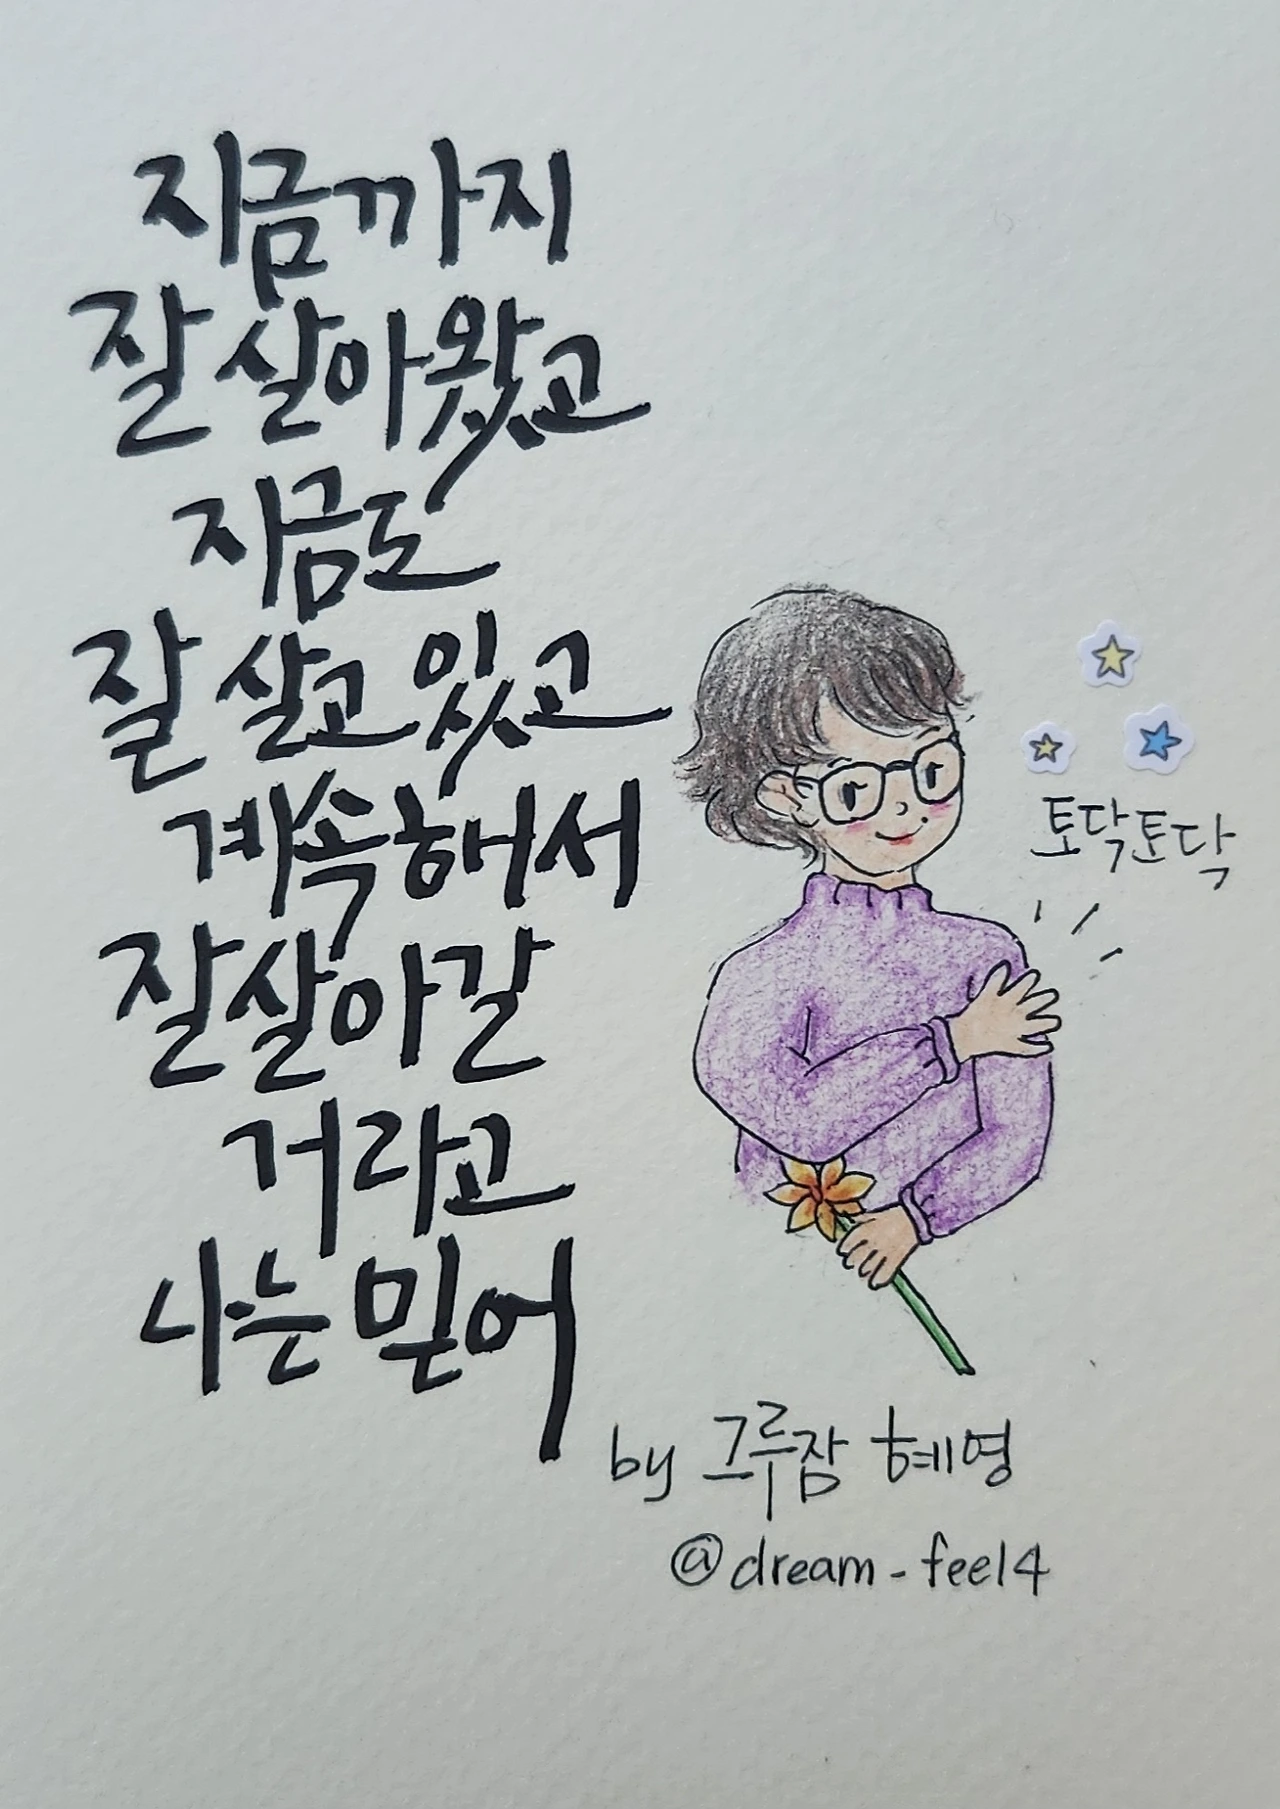 지금까지
잘 살아왔고
지금도
잘 살고 있고
계속해서
잘 살아갈
거라고
나는 믿어
토닥토닥
by 그루잠 혜영
@dream_feel4